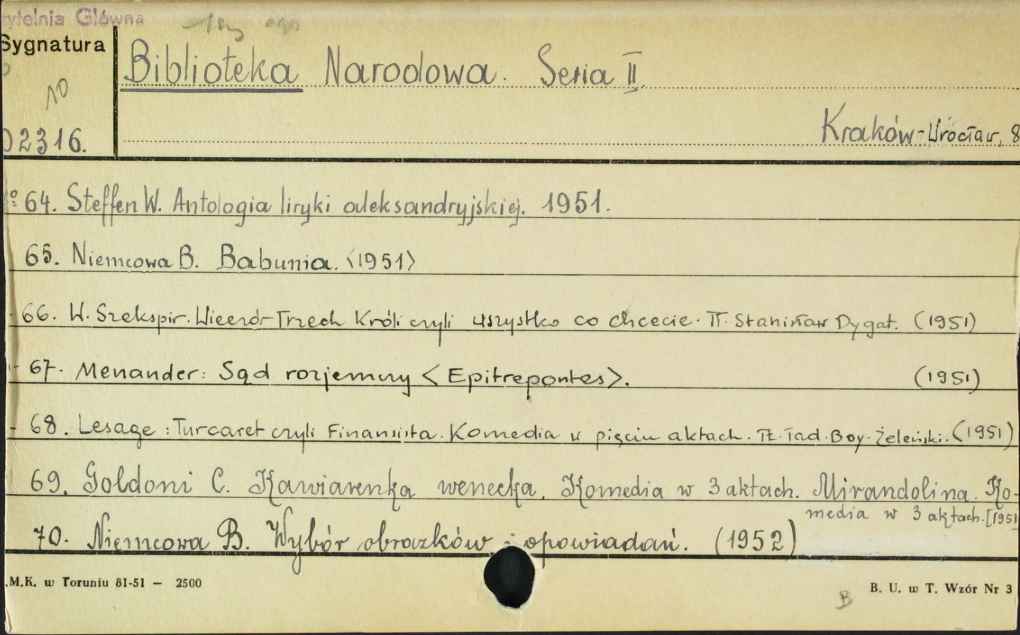 zytelnia Główna
Sygnatura
Biblioteka Narodowa. Seria II.
10
02316.
Kraków-Wrocław, 8
64. Steffen W. Antologia liryki aleksandryjskiej. 1951.
65. Niemcowa B. Babunia. <1951>
66. W. Szekspir. Wieczór Trzech Króli czyli wszystko co chcecie. Tł. Stanisław Dygat. (1951)
67. Menander: Sąd rozjemczy <Epitrepontes>. (1951)
68. Lesage: Turcaret czyli Finansista. Komedia w pięciu aktach. Tł. Tad. Boy-Żeleński. (1951)
69. Goldoni C. Kawiarenka wenecka. Komedia w 3 aktach. Mirandolina. Ko-
media w 3 aktach. [1951
70. Niemcowa B. Wybór obrazków i opowiadań. (1952)
.M.K. w Toruniu 81-51 — 2500
B. U. w T. Wzór Nr 3
B